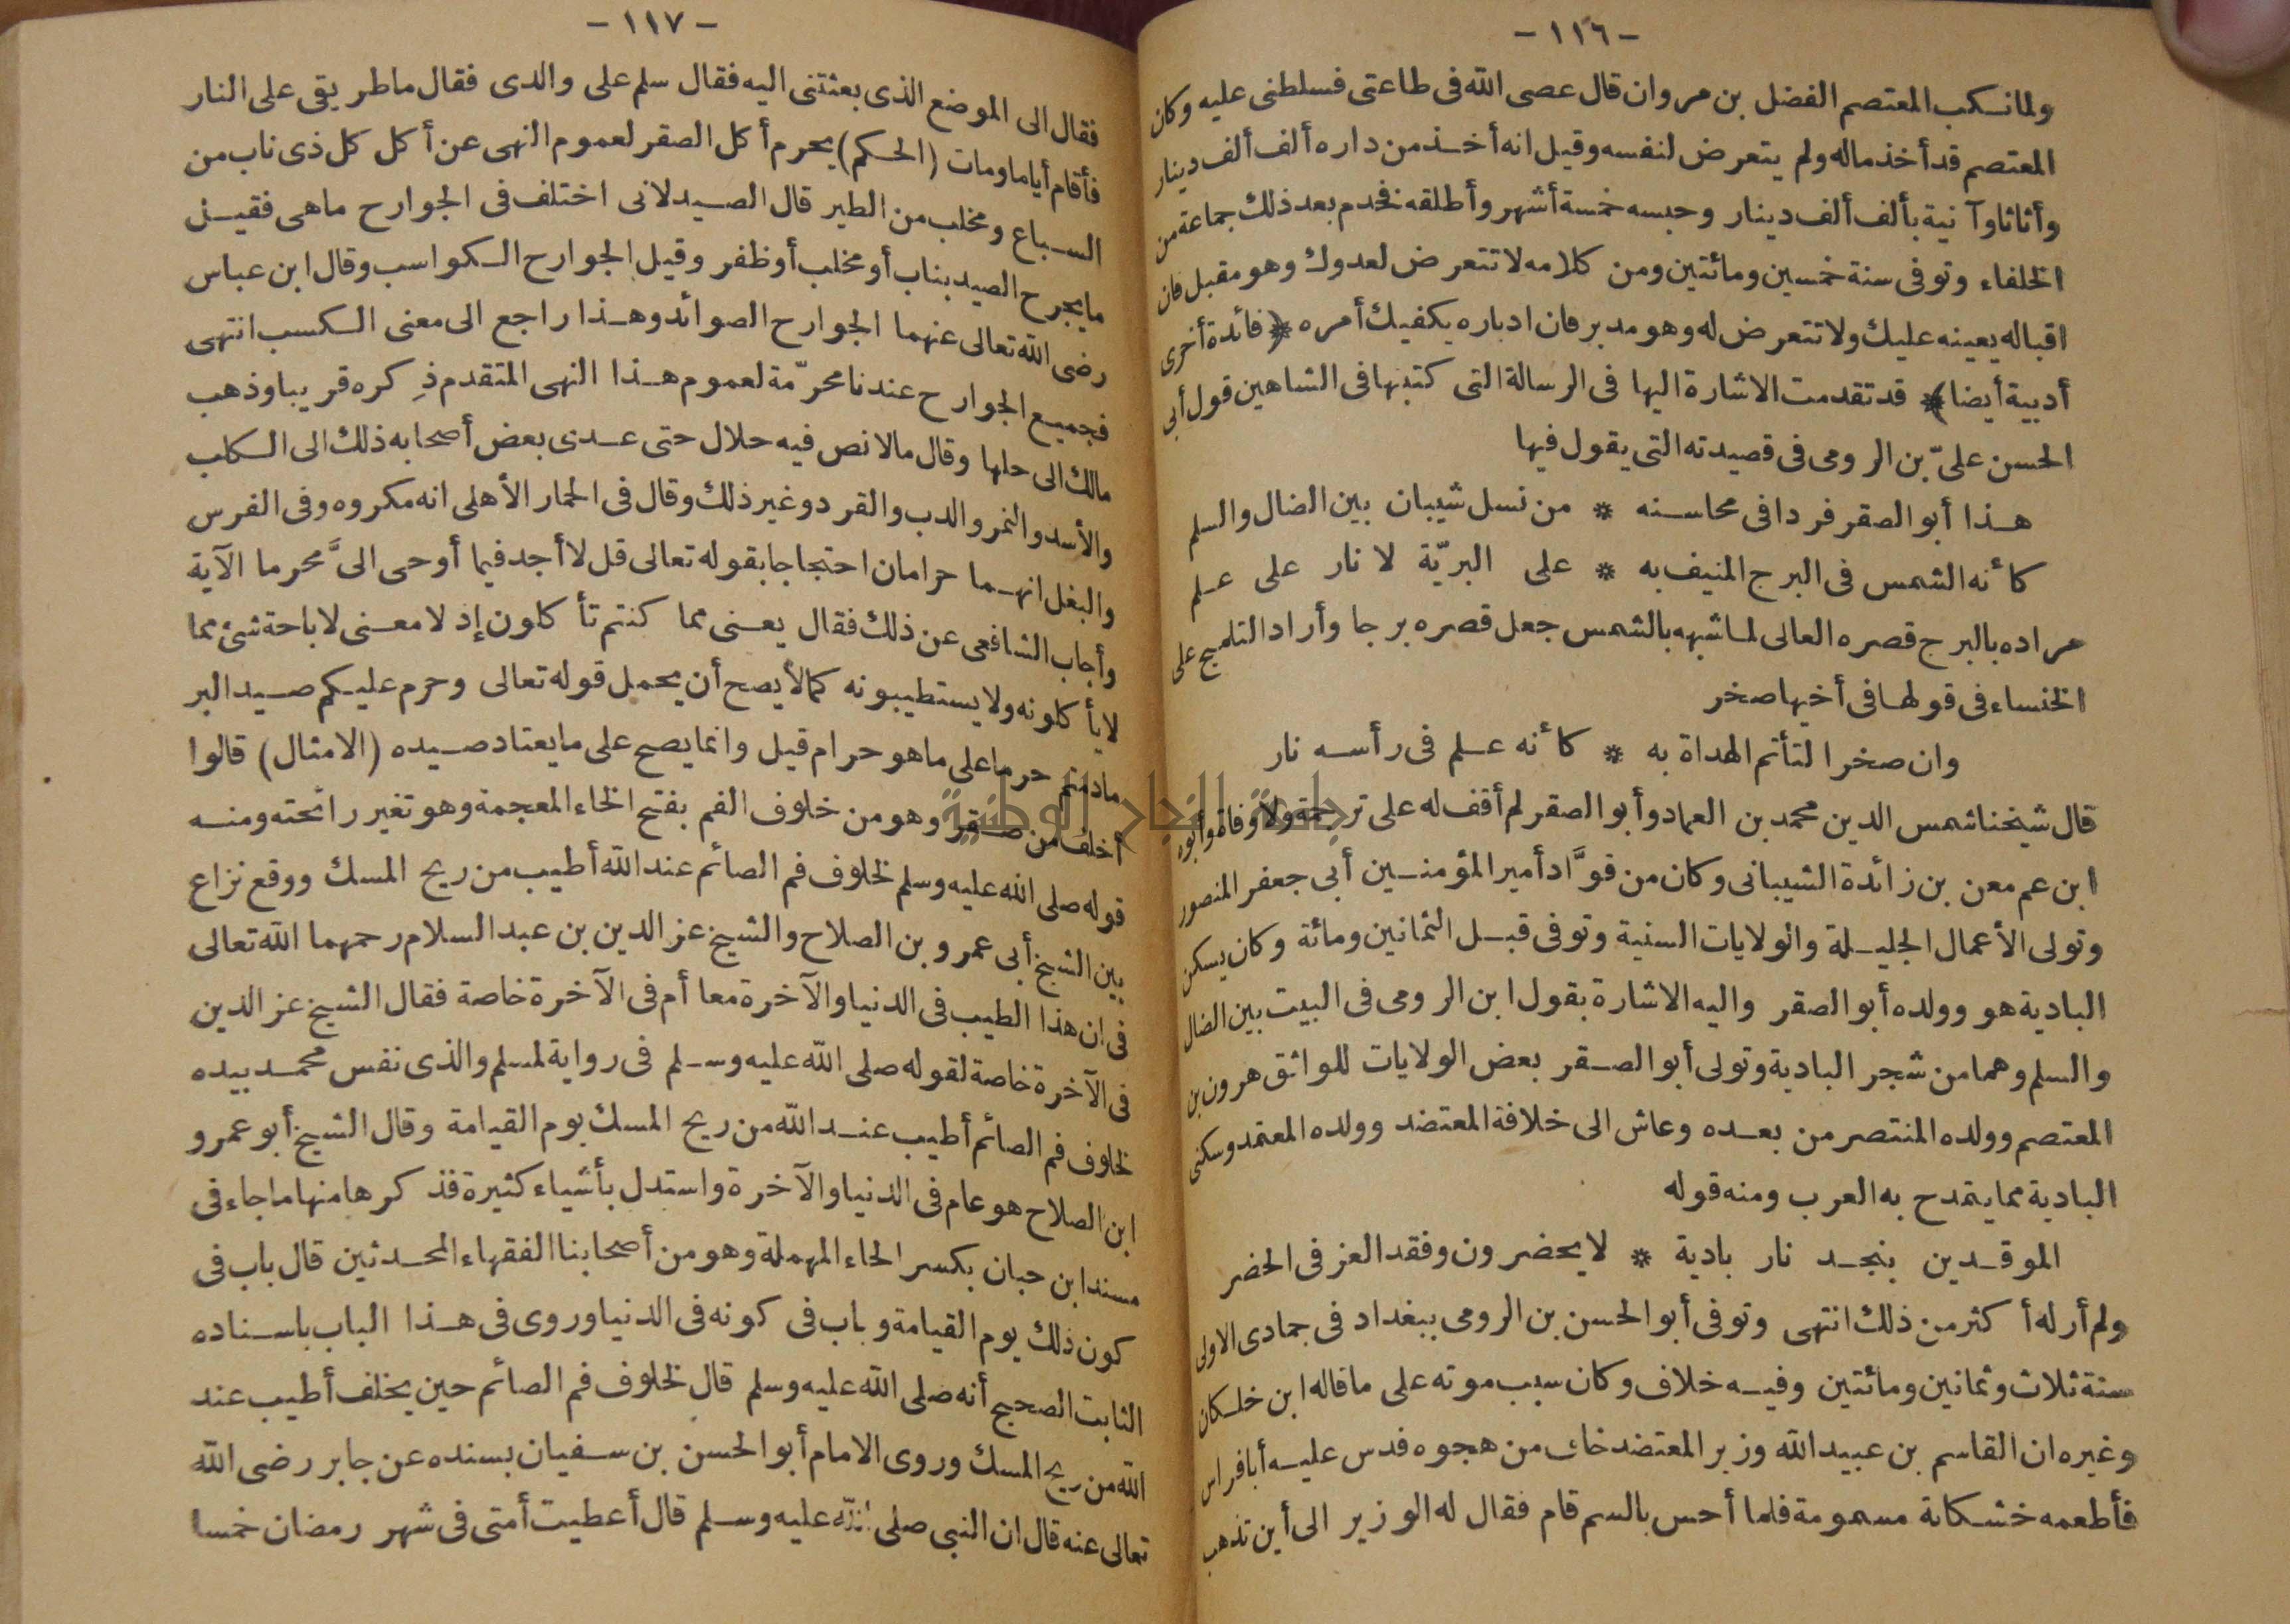 - ١١٦ -
ولما نكب المعتصم الفضل بن مروان قال عصى الله فى طاعتى فسلطنى عليه وكان
المعتصم قد أخذ ماله ولم يتعرض لنفسه وقيل انه أخذ من داره ألف ألف دينار
وأثاثا وآنية بألف ألف دينار وحبسه خمسة أشهر وأطلقه فخدم بعد ذلك جماعة من
الخلفاء وتوفى سنة خمسين ومائتين ومن كلامه لا تتعرض لعدوك وهو مقبل فان
اقباله يعينه عليك ولا تتعرض له وهو مدبر فان ادباره يكفيك أمره * (فائدة أخرى
أدبية أيضا) * قد تقدمت الاشارة اليها فى الرسالة التى كتبتها فى الشاهين قول أبى
الحسن علىّ بن الرومى فى قصيدته التى يقول فيها
هذا أبو الصقر فردا فى محاسنه * من نسل شيبان بين الضال والسلم
كأنه الشمس فى البرج المنيف به * على البريّة لا نار على علم
مراده بالبرج قصره العالى لما شبهه بالشمس جعل قصره برجا وأراد التلميح على
الخنساء فى قولها فى أخيها صخر
وان صخرا لتأتم الهداة به * كأنه علم فى رأسه نار
قال شيخنا شمس الدين محمد بن العماد وأبو الصقر لم أقف له على ترجمة ولا وفاة وأبوه
ابن عم معن بن زائدة الشيبانى وكان من قوَّاد أمير المؤمنين أبى جعفر المنصور
وتولى الأعمال الجليلة والولايات السنية وتوفى قبل الثمانين ومائة وكان يسكن
البادية هو وولده أبو الصقر واليه الاشارة بقول ابن الرومى فى البيت بين الضال
والسلم وهما من شجر البادية وتولى أبو الصقر بعض الولايات للواثق هرون بن
المعتصم وولده المنتصر من بعده وعاش الى خلافة المعتضد وولده المعتمد وسكنى
البادية مما يتمدح به العرب ومنه قوله
الموقدين بنجد نار بادية * لا يحضرون وفقد العز فى الحضر
ولم أر له أكثر من ذلك انتهى وتوفى أبو الحسن بن الرومى ببغداد فى جمادى الاولى
سنة ثلاث وثمانين ومائتين وفيه خلاف وكان سبب موته على ما قاله ابن خلكان
وغيره ان القاسم بن عبيد الله وزير المعتضد خاف من هجوه فدس عليه أبا فراس
فأطعمه خشكانة مسمومة فلما أحس بالسم قام فقال له الوزير الى أين تذهب
- ١١٧ -
فقال الى الموضع الذى بعثتنى اليه فقال سلم على والدى فقال ما طريقى على النار
فأقام أياما ومات (الحكم) يحرم أكل الصقر لعموم النهى عن أكل كل ذى ناب من
السباع ومخلب من الطير قال الصيدلانى اختلف فى الجوارح ما هى فقيل
ما يجرح الصيد بناب أو مخلب أو ظفر وقيل الجوارح الكواسب وقال ابن عباس
رضى الله تعالى عنهما الجوارح الصوائد وهذا راجع الى معنى الكسب انتهى
فجميع الجوارح عندنا محرّمة لعموم هذا النهى المتقدم ذِكره قريبا وذهب
مالك الى حلها وقال ما لا نص فيه حلال حتى عدى بعض أصحابه ذلك الى الكلب
والأسد والنمر والدب والقرد وغير ذلك وقال فى الحمار الأهلى انه مكروه وفى الفرس
والبغل انهما حرامان احتجاجا بقوله تعالى قل لا أجد فيما أوحى الىَّ محرما الآية
وأجاب الشافعى عن ذلك فقال يعنى مما كنتم تأكلون إذ لا معنى لاباحة شئ مما
لا يأكلونه ولا يستطيبونه كما لا يصح أن يحمل قوله تعالى وحرم عليكم صيد البر
مادمتم حرما على ما هو حرام قبل وانما يصح على ما يعتاد صيده (الامثال) قالوا
أخلف من صقر وهو من خلوف الفم بفتح الخاء المعجمة وهو تغير رائحته ومنه
قوله صلى الله عليه وسلم لخلوف فم الصائم عند الله أطيب من ريح المسك ووقع نزاع
بين الشيخ أبى عمرو بن الصلاح والشيخ عز الدين بن عبد السلام رحمهما الله تعالى
فى ان هذا الطيب فى الدنيا والآخرة معا أم فى الآخرة خاصة فقال الشيخ عز الدين
فى الآخرة خاصة لقوله صلى الله عليه وسلم فى رواية لمسلم والذى نفس محمد بيده
لخلوف فم الصائم أطيب عند الله من ريح المسك يوم القيامة وقال الشيخ أبو عمرو
ابن الصلاح هو عام فى الدنيا والآخرة واستدل بأشياء كثيرة فذكرها منها ما جاء فى
مسند ابن حبان بكسر الحاء المهملة وهو من أصحابنا الفقهاء المحدثين قال باب فى
كون ذلك يوم القيامة وباب فى كونه فى الدنيا وروى فى هذا الباب باسناده
الثابت الصحيح أنه صلى الله عليه وسلم قال لخلوف فم الصائم حين يخلف أطيب عند
الله من ريح المسك وروى الامام أبو الحسن بن سفيان بسنده عن جابر رضى الله
تعالى عنه قال ان النبى صلى الله عليه وسلم قال أعطيت أمتى فى شهر رمضان خمسا
جامعة النجاح الوطنية